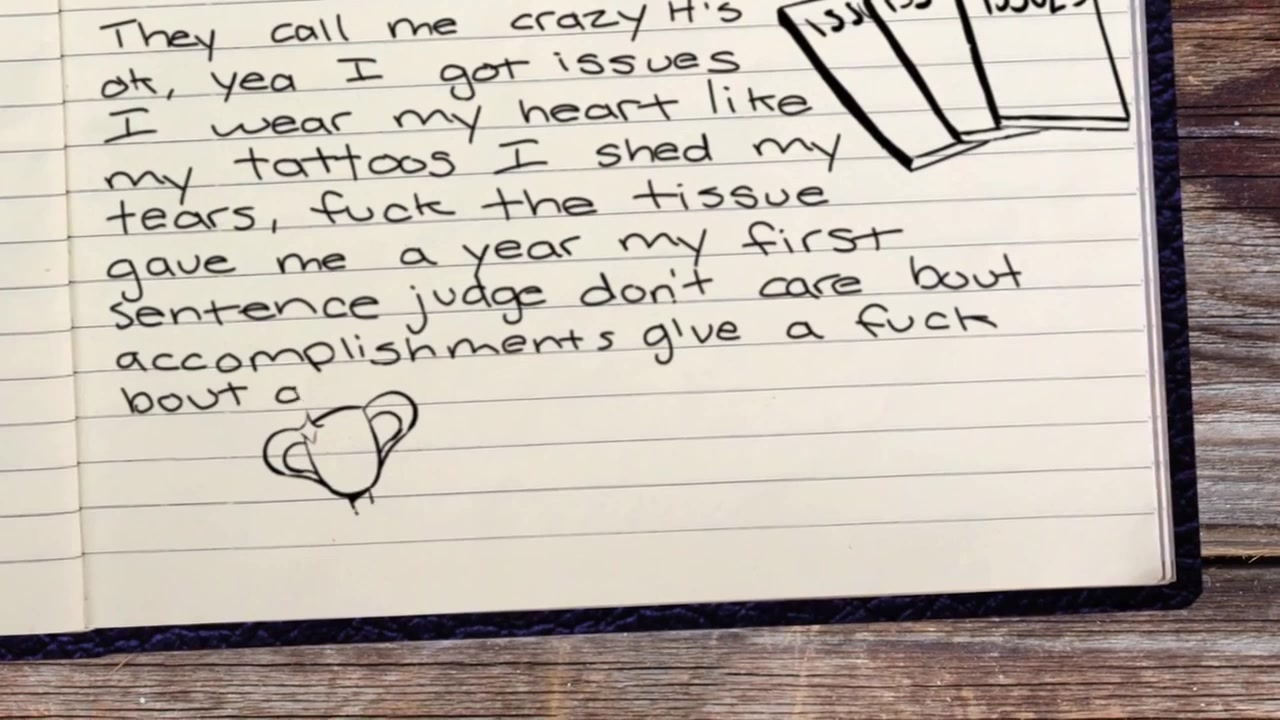 They call me crazy it's
ISSUES
ok, yea I got issues
I wear my heart like
my tattoos I shed my
tears, fuck the tissue
gave me a year my first
sentence judge don't care bout
accomplishments give a fuck
bout a